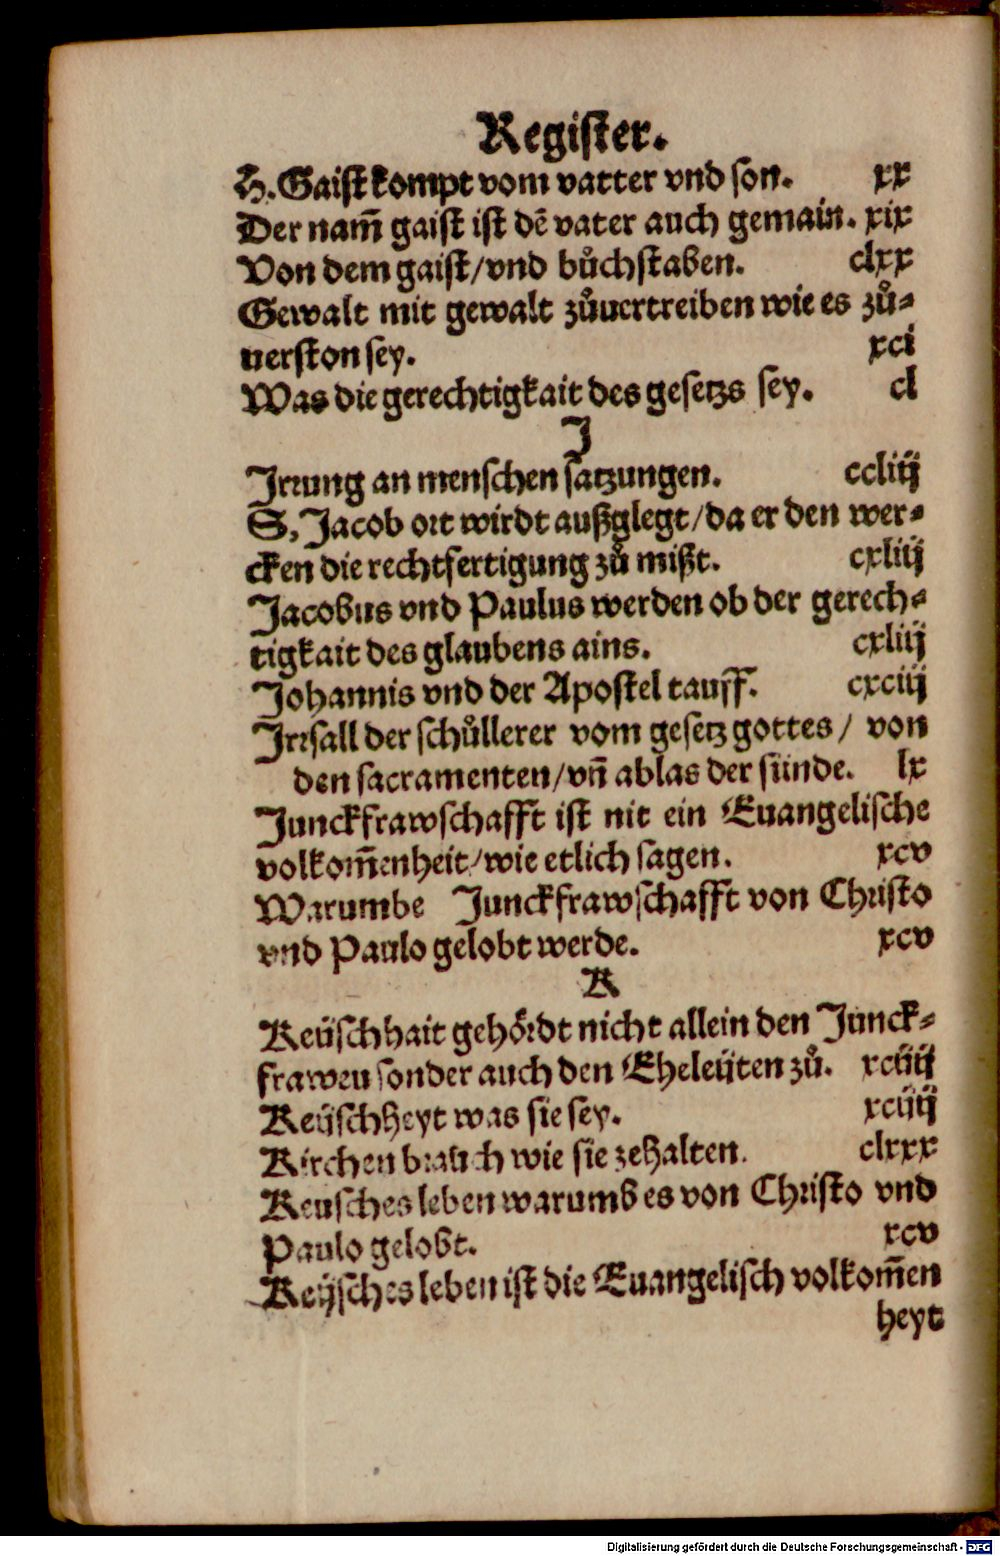 Register.
H. Gaist kompt vom vatter vnd son. xx
Der nam̄ gaist ist dē vater auch gemain. xix
Von dem gaist/vnd bůchstaben. clxx
Gewalt mit gewalt zůuertreiben wie es zů-
uerston sey. xci
Was die gerechtigkait des gesetzs sey. cl
J
Jrrung an menschen satzungen. ccliij
S. Jacob ort wirdt außglegt/da er den wer-
cken die rechtfertigung zů mißt. cxliij
Jacobus vnd Paulus werden ob der gerech-
tigkait des glaubens ains. cxliij
Johannis vnd der Apostel tauff. cxciij
Jrrsall der schůllerer vom gesetz gottes/ von
den sacramenten/vn̄ ablas der sünde. lx
Junckfrawschafft ist nit ein Euangelische
volkom̄enheit/wie etlich sagen. xcv
Warumbe Junckfrawschafft von Christo
vnd Paulo gelobt werde. xcv
K
Keüschhait gehördt nicht allein den Junck-
frawen sonder auch den Eheleüten zů. xciiij
Keüschheyt was sie sey. xciiij
Kirchen brauch wie sie zehalten. clxxx
Keusches leben warumb es von Christo vnd
Paulo gelobt. xcv
Keüsches leben ist die Euangelisch volkom̄en
heyt
Digitalisierung gefördert durch die Deutsche Forschungsgemeinschaft - DFG